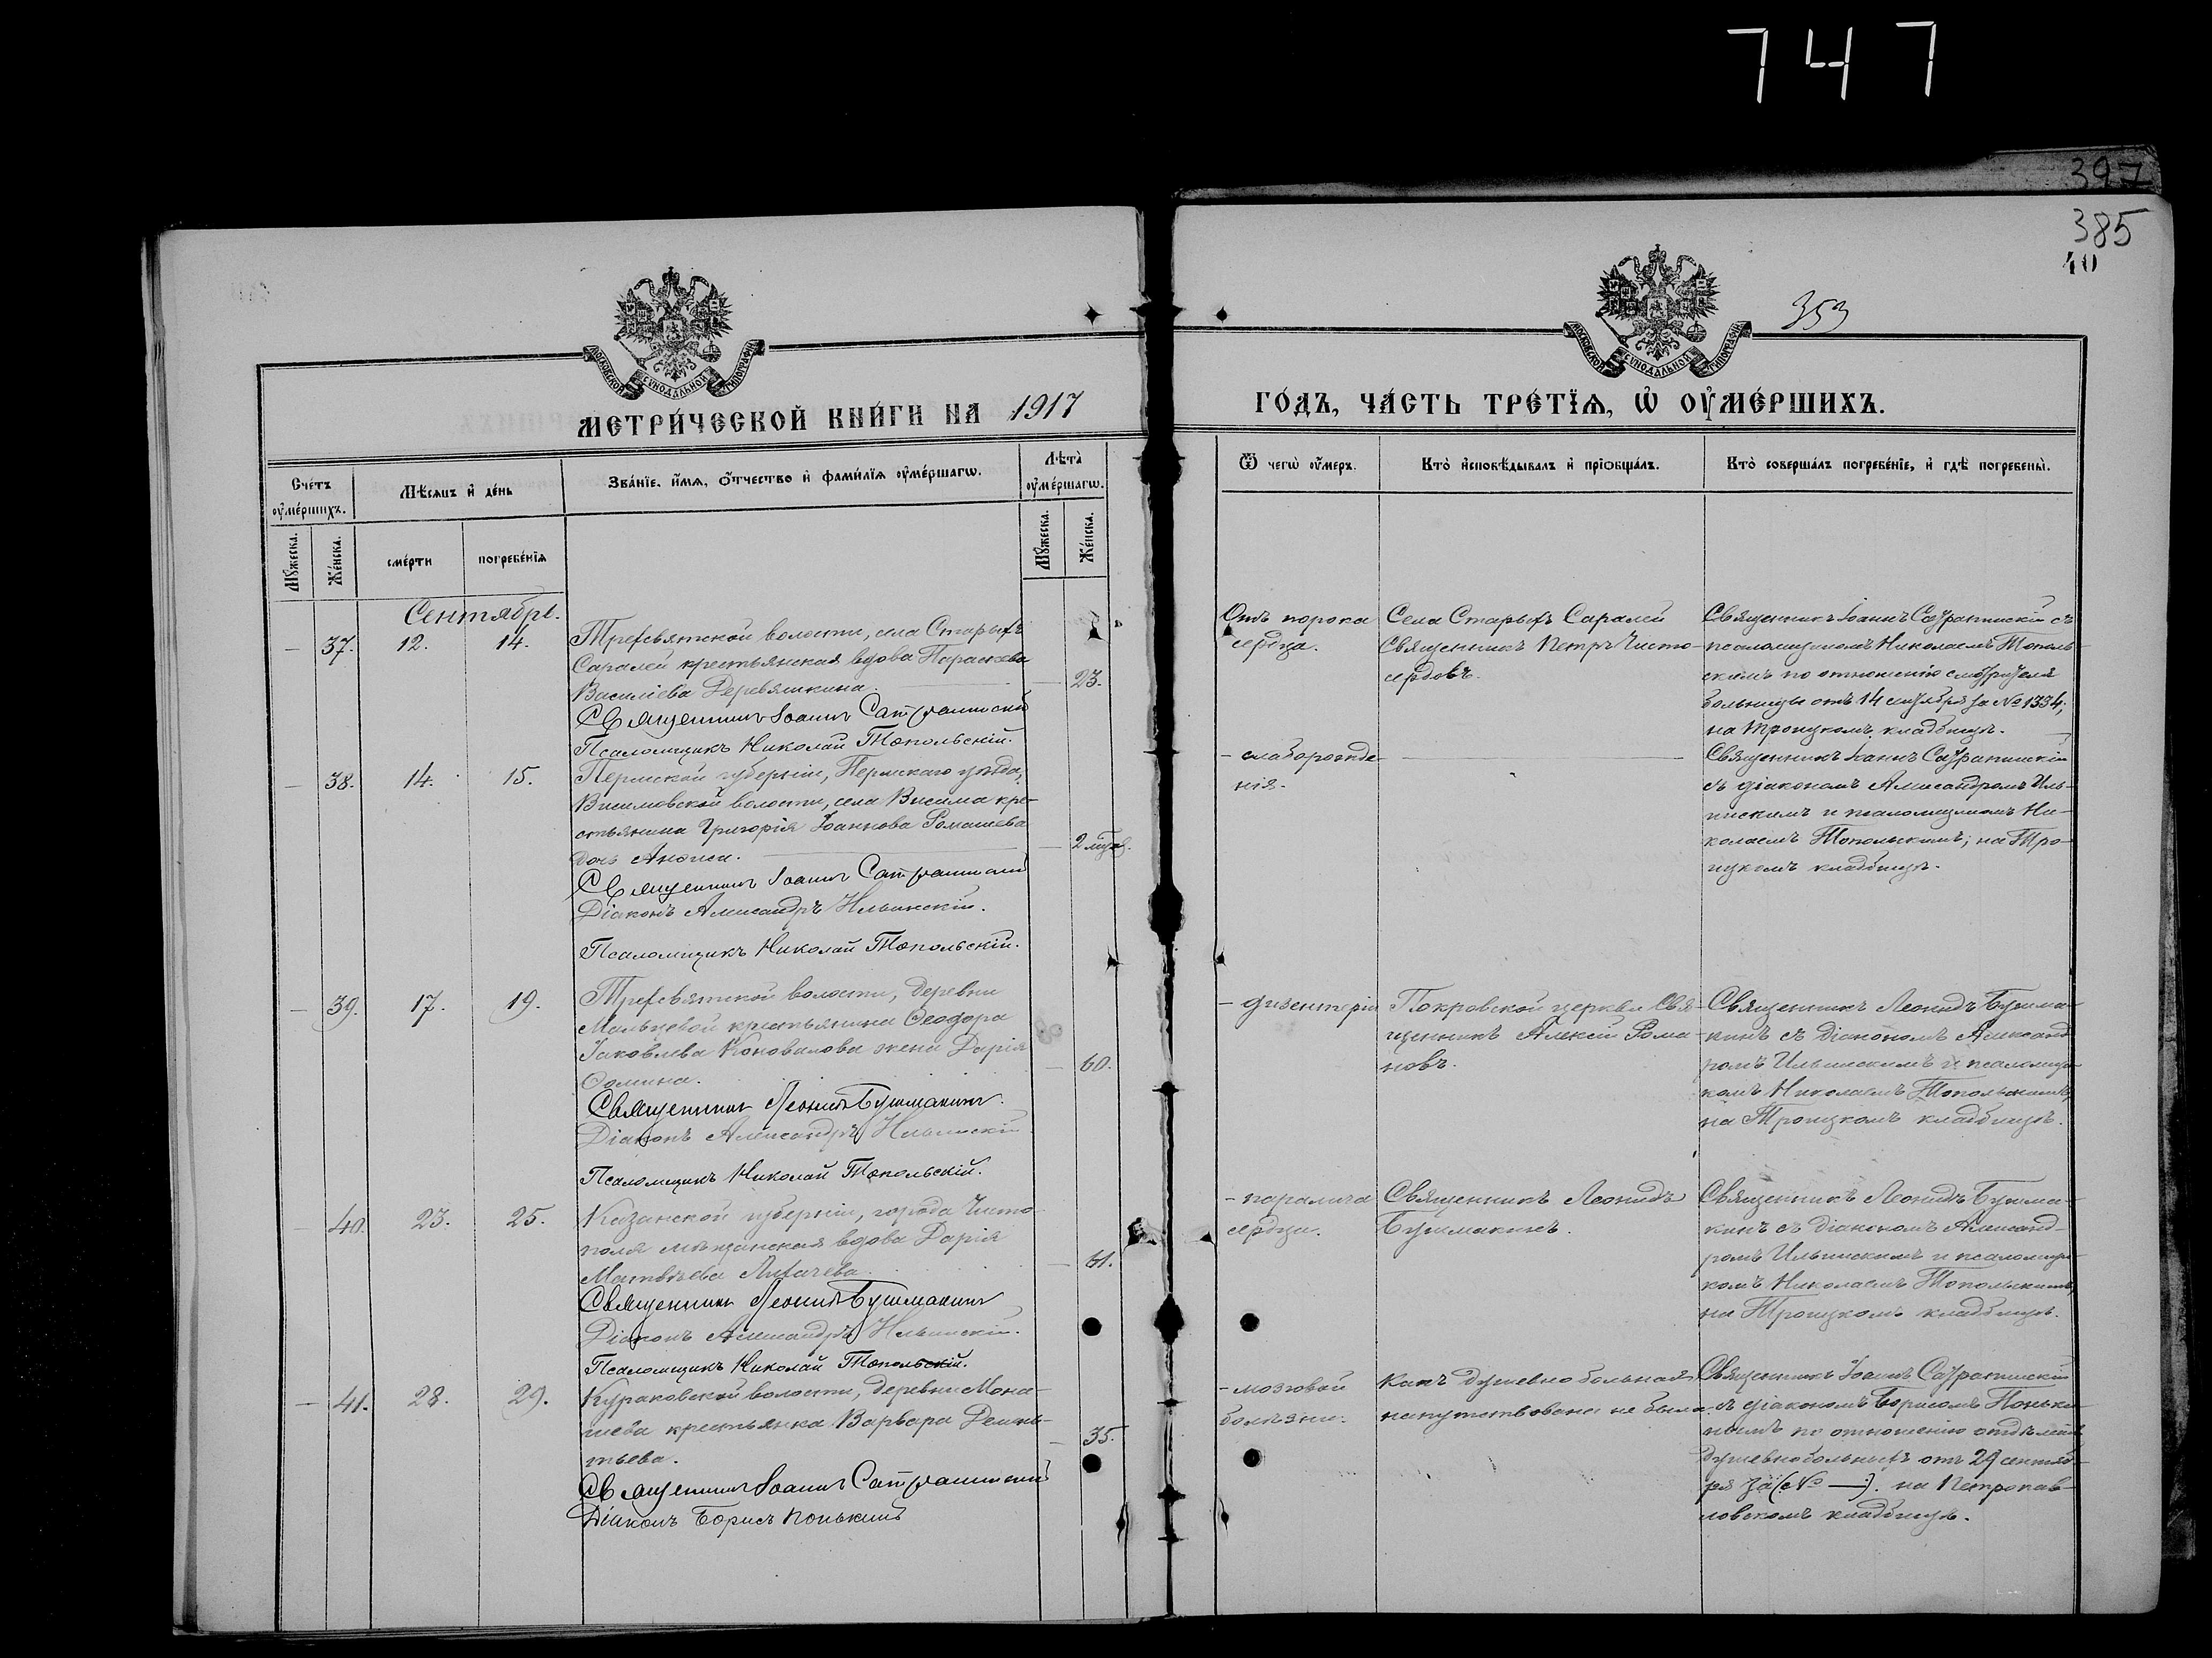 747
397
385
40
353
МОСКОВСКОЙ СѴНОДАЛЬНОЙ ТИПОГРАФІИ
МОСКОВСКОЙ СѴНОДАЛЬНОЙ ТИПОГРАФІИ
МЕТРИ́ЧЕСКОЙ КНИ́ГИ НА 1917
ГО́ДЪ, ЧА́СТЬ ТРЕ́ТЇѦ, Ѡ҆ ОУ҆МЕ́РШИХЪ.
Сче́тъ оу҆ме́ршихъ.
Мѣ́сѧцъ и҆ де́нь
Зва́нїе, и҆́мѧ, ѻ҆́тчество и҆ фами́лїѧ оу҆ме́ршагѡ.
Лѣ́та оу҆ме́ршагѡ.
Мꙋ́жеска.
Же́нска.
сме́рти
погребе́нїѧ
Мꙋ́жеска.
Же́нска.
Ѿ чегѡ̀ оу҆́меръ.
Кто̀ и҆сповѣ́дывалъ и҆ прїѻбща́лъ.
Кто̀ соверша́лъ погребе́нїе, и҆ гдѣ̀ погребены̀.
Сентябрь.
— 37. 12. 14.
Трехсвятской волости, села Старыхъ
Саралей крестьянская вдова Параскева
Василіева Деревяшкина.
— 23.
Священникъ Іоаннъ Сатрапинскій
Псаломщикъ Николай Топольскій.
Отъ порока
сердца.
Села Старыхъ Саралей
Священникъ Петръ Чисто-
сердовъ.
Священникъ Іоаннъ Сатрапинскій съ
псаломщикомъ Николаемъ Тополь-
скимъ по отношенію смотрителя
больницы отъ 14 сентября за № 1334,
на Троицкомъ кладбищѣ.
— 38. 14. 15.
Пермской губерніи, Пермскаго уѣзда,
Висимовской волости, села Висима кре-
стьянина Григорія Іоаннова Ромашева
дочь Анфиса.
— 2 мѣс.
Священникъ Іоаннъ Сатрапинскій
Діаконъ Александръ Ильинскій.
Псаломщикъ Николай Топольскій.
- слаборожде-
нія.
Священникъ Іоаннъ Сатрапинскій
съ діакономъ Александромъ Иль-
инскимъ и псаломщикомъ Ни-
колаемъ Топольскимъ; на Тро-
ицкомъ кладбищѣ.
— 39. 17. 19.
Трехсвятской волости, деревни
Мальцевой крестьянина Ѳеодора
Іаковлева Коновалова жена Дарія
Ѳомина.
— 60.
Священникъ Леонидъ Бушмакинъ.
Діаконъ Александръ Ильинскій
Псаломщикъ Николай Топольскій.
- дизентеріи
Покровской церкви Свя-
щенникъ Алексій Рома-
новъ.
Священникъ Леонидъ Бушма-
кинъ съ діакономъ Александ-
ромъ Ильинскимъ и псаломщи-
комъ Николаемъ Топольскимъ,
на Троицкомъ кладбищѣ.
— 40. 23. 25.
Казанской губерніи, города Чисто-
поля мѣщанская вдова Дарія
Матвѣева Лихачева.
— 61.
Священникъ Леонидъ Бушмакинъ
Діаконъ Александръ Ильинскій.
Псаломщикъ Николай Топольскій.
- паралича
сердца.
Священникъ Леонидъ
Бушмакинъ.
Священникъ Леонидъ Бушма-
кинъ съ діакономъ Александ-
ромъ Ильинскимъ и псаломщи-
комъ Николаемъ Топольскимъ,
на Троицкомъ кладбищѣ.
— 41. 28. 29.
Кураковской волости, деревни Мона-
шева крестьянка Варвара Демен-
тьева.
— 35.
Священникъ Іоаннъ Сатрапинскій
Діаконъ Борисъ Понькинъ
- мозговой
болѣзни.
Какъ душевно больная
напутствована не была.
Священникъ Іоаннъ Сатрапинскій
съ діакономъ Борисомъ Понькинымъ
по отношенію отдѣленія
душевнобольныхъ отъ 29 сентяб-
ря за (№ —). на Петропав-
ловскомъ кладбищѣ.